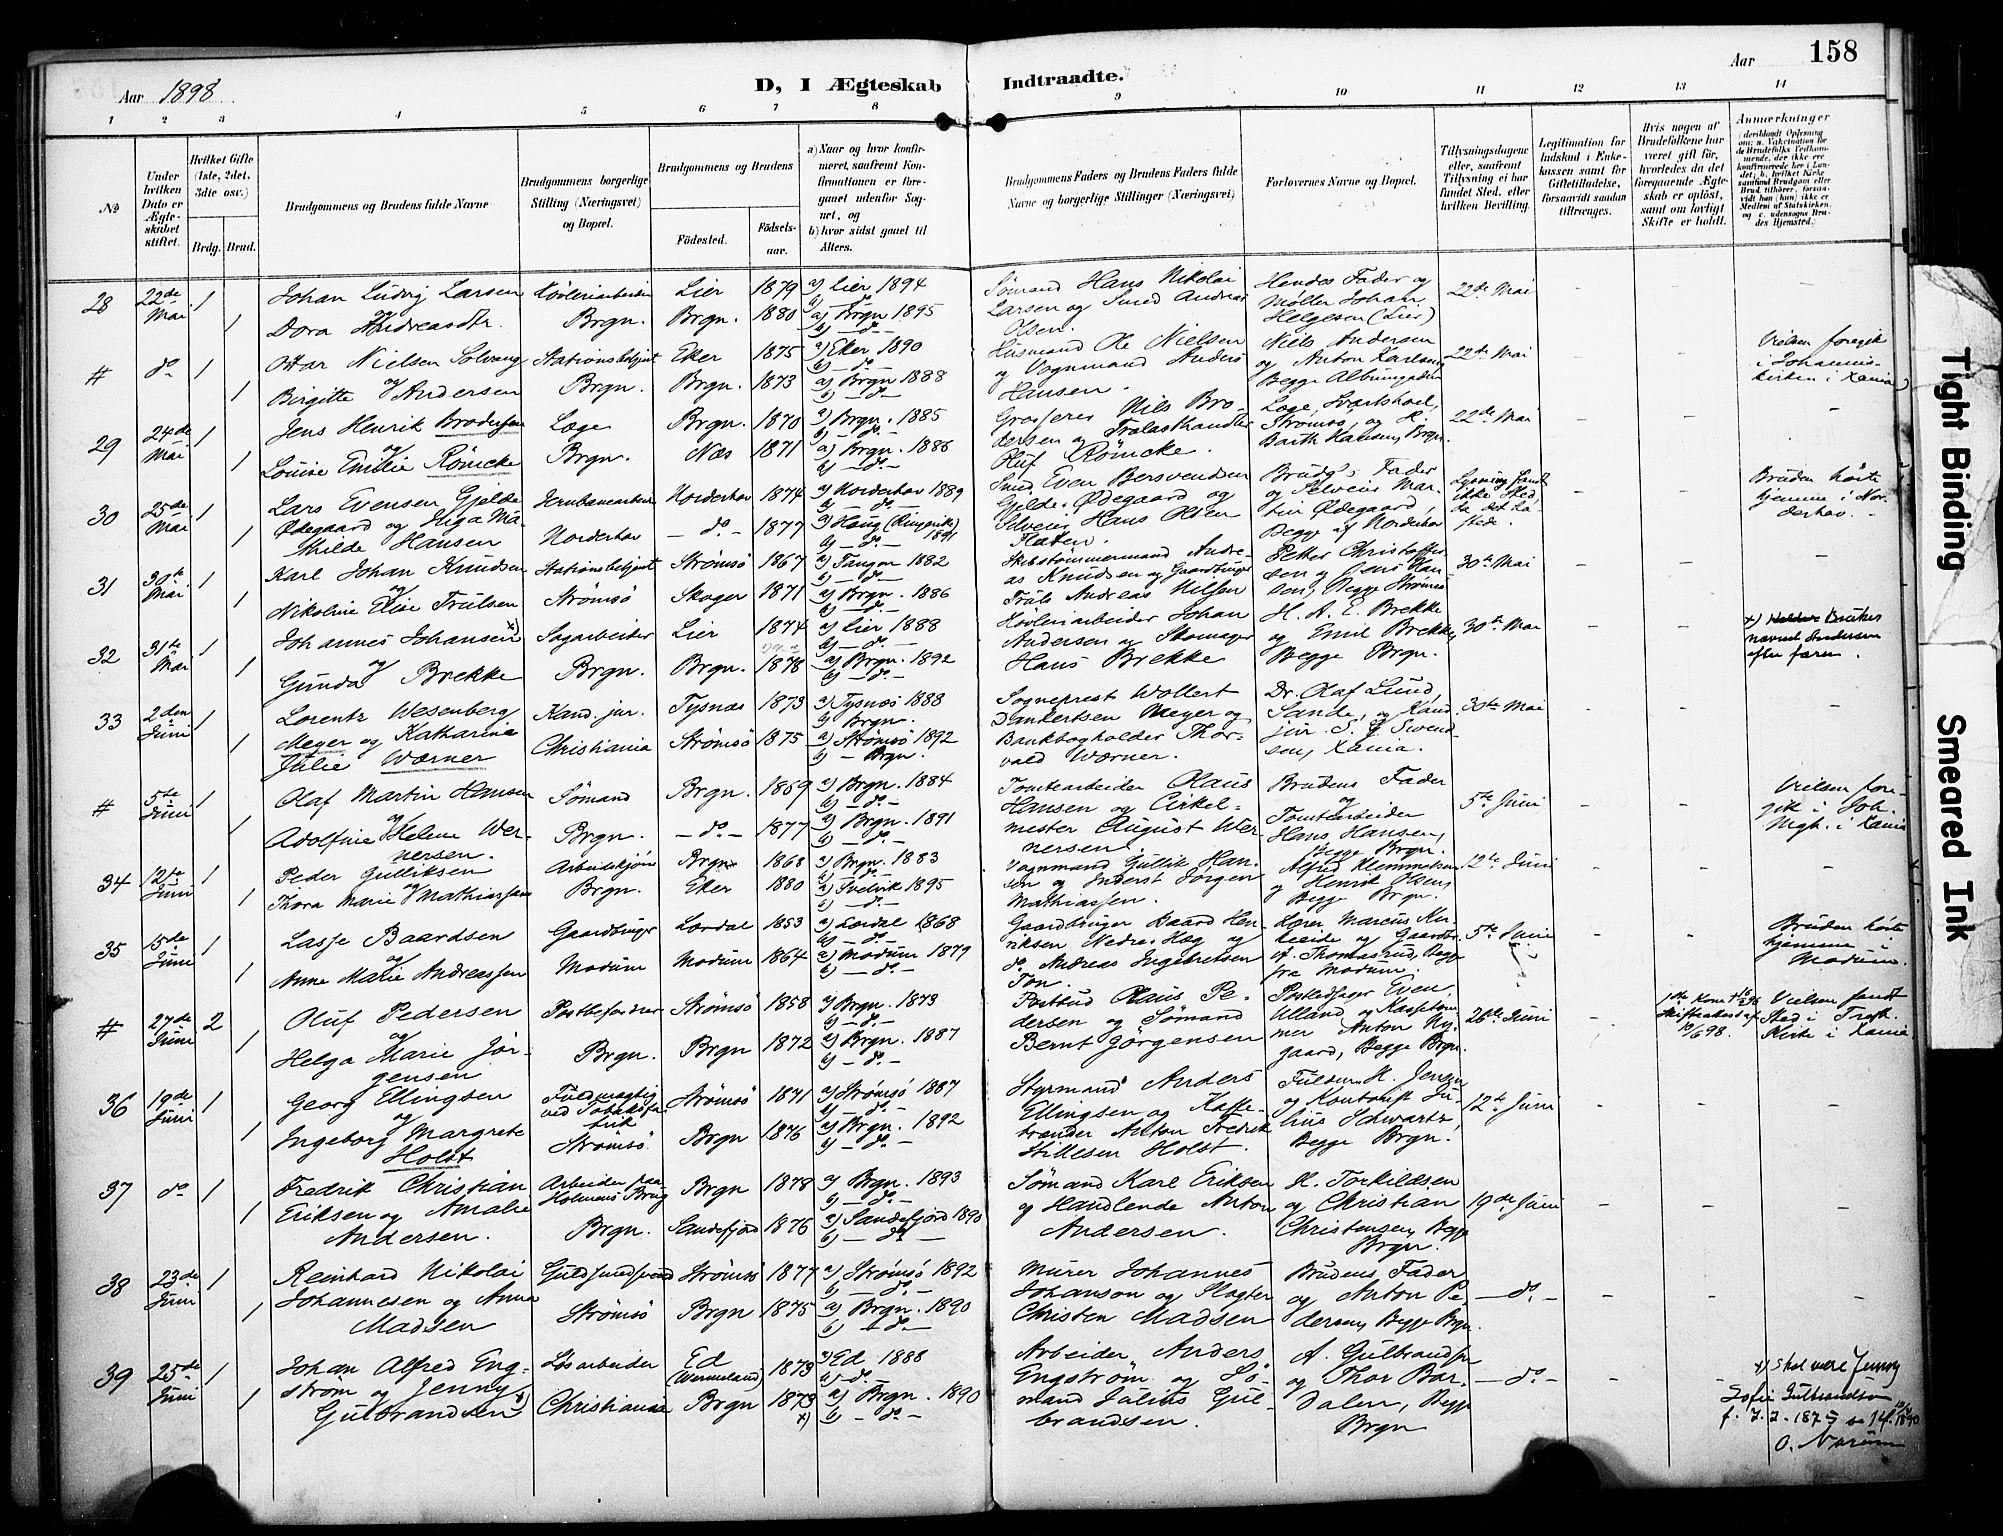 Aar 1898
D, I Ægteskab
Indtraadte.
Aar 158
1 2 3 4 5 6 7 8 9 10 11 12 13 14
№
Under hvilken Dato er Ægteskabet stiftet.
Hvilket Gifte (1ste, 2det, 3die osv.)
Brdg. Brud.
Brudgommens og Brudens fulde Navne
Brudgommens borgerlige Stilling (Næringsvei) og Bopæl.
Brudgommens og Brudens
Födested. Födselsaar.
a) Naar og hvor konfirmeret, saafremt Konfirmationen er foregaaet udenfor Sognet, og
b) hvor sidst gaaet til Alters.
Brudgommens Faders og Brudens Faders fulde Navne og borgerlige Stillinger (Næringsvei)
Forlovernes Navne og Bopæl.
Tillysningsdagene eller, saafremt Tillysning ei har fundet Sted, efter hvilken Bevilling.
Legitimation for Indskud i Enkekassen samt for Giftetilladelse, forsaavidt saadan tiltrænges.
Hvis nogen af Brudefolkene har været gift för, hvorledes da det foregaaende Ægteskab er oplöst, samt om lovligt Skifte er holdt.
Anmærkninger
28 22de Mai 1 1 Johan Ludvig Larsen og Dora Andreasdtr.
Lier 1879 a) Lier 1894 b) do
Brgn. Brgn. 1880 a) Brgn 1895 b) — do —
Sömand Hans Nikolai Larsen og Smed Andreas Olsen.
Hendes Fader og Møller Johan Helgesen (Lier)
22de Mai - - -
# do 1 1 Ottar Nielsen Solvang og Birgitte Andersen
Stationsbetjent Eker 1875 a) Eker 1890 b) — do —
Brgn. Brgn. 1873 a) Brgn 1888 b) — do —
Husmand Ole Nielsen og Vognmand Anders Hansen.
Niels Andersen og Anton Karlsen, Begge
22de Mai - -
Vielsen foregik i Johanneskirken i Xania
29 24de Mai 1 1 Jens Henrik Brodersen og Louise Emilie Rönicke
Læge Brgn. 1870 a) Brgn. 1885 b) — do —
Brgn. Næs 1871 a) Brgn. 1886 b) — do —
Grosserer Nils Brodersen og Trælasthandler Oluf Rönicke.
Strømsö, og Barth Hansen, Brgn.
22de Mai - - -
30 25de Mai 1 1 Lars Evensen Gjelde Ødegaard og Helga Mathilde Hansen
Jernbanearbeider Norderhov 1874 a) Norderhov 1889 b) — do —
Norderhov — do — 1877 a) Haug (Ringerike) 1891 b) — do —
Smed Even Bersvendsen Gjelde Ødegaard og Selveier Hans Olsen
Brudg.s Fader og Selveier Martin Ødegaard, Begge af Norderhov
Lysning fandt ikke Sted
Bruden hörte hjemme i Norderhov.
31 30te Mai 1 1 Karl Johan Knudsen og Nikoline Elise Trulsen
Stationsbetjent Strömsö 1867 a) Tangen 1882 b) — do —
Strömsö Skoger 1871 a) Brgn. 1886 b) — do —
Skibstömmermand Andreas Knudsen og Gaardbruger Truls Andreas Nilsen
Petter Christoffersen og Hansen, Begge Strömsö
30te Mai - - -
32 31te Mai 1 1 Johannes Johansen x) og Gunda Brekke
Sagarbeider Lier 1874 a) Lier 1888 b) — do —
Brgn. Brgn. 1878 a) Brgn. 1892 b) — do —
Hövleriarbeider Johan Andersen og Skomager Hans Brekke
H. A. E. Brekke og Emil Brekke, Begge Brgn.
30te Mai - -
x) bruker navnet Andersen efter faren.
33 2den Juni 1 1 Lorentz Wesenberg Meyer og Katharina Julie Wærner
Kand. jur. Tysnæs 1873 a) Tysnæs 1888 b) Brgn.
Christiania Strömsö 1875 a) Strömsö 1892 b) — Brgn.
Sogneprest Wollert Dankertsen Meyer og Bankbogholder Thorvald Wærner.
Dr. Olaf Lund, Sande, og Kand. jur. S. J. Svendsen, Xania.
30te Mai - - -
# 5te Juni 1 1 Olaf Martin Hansen og Adolfine Helene Wernersen.
Sömand Brgn. 1869 a) Brgn. 1884 b) — do —
Brgn. — do — 1877 a) Brgn. 1891 b) — do —
Tomtearbeider Olaus Hansen og Cirkelmester August Wernersen.
Brudens Fader og Tomtearbeider Hans Hansen, Begge Brgn.
5te Juni - -
Vielsen foregik i Joh. Mgh. i Xania
34 12te Juni 1 1 Peder Gulliksen og Thora Marie Mathiassen
Brgn. 1868 a) Brgn. 1883 b) — do —
Brgn. Eker 1880 a) Svelvik 1895 b) — do —
Vognmand Gullik Hansen og Inderst Jörgen Mathiassen.
Alfred Klemmetsen og Henrik Olsen, Begge Brgn.
12te Juni - - -
35 15de Juni 1 1 Lasse Baardsen og Anne Marie Andreassen
Gaardbruger Lærdal 1853 a) Lærdal 1868 b) — do —
Modum Modum 1864 a) Modum 1879 b) — do —
Gaardbruger Baard Henriksen Nedre-Hæg og do Andreas Ingebretsen
Lærer Marcus og Gaardbr. A. Thomasrud, Begge fra Modum.
5te Juni - -
Bruden hörte hjemme i Modum.
# 27de Juni 2 1 Oluf Pedersen og Helga Marie Jörgensen
Postbefordrer Strömsö 1858 a) Brgn. 1873 b) — do —
Brgn. Brgn 1872 a) Brgn. 1887 b) — do —
Postbud Olaus Pedersen og Sömand Bernt Jörgensen
Postledsager Even Ulland og Anton Nygaard, Begge Brgn.
26de Juni -
1ste Kone
10/6 98.
Vielsen fandt Sted i Trefk. Kirke i Xania
36 19de Juni 1 1 Georg Ellingsen og Ingeborg Margrete Holst
Fuldmægtig ved Tobaksfabrik Strömsö 1871 a) Strömsö 1887 b) — do —
Strömsö Brgn 1876 a) Brgn. 1892 b) — do —
Styrmand Anders Ellingsen og Kaffebrænder Anton Fredrik Stillesen Holst.
H. Jensen og Kontorist Julius Schwartz, Begge Brgn.
12te Juni - - -
37 do 1 1 Fredrik Christian Eriksen og Amalie Andersen.
Arbeider paa Holmens Brug Brgn 1878 a) Brgn. 1893 b) — do —
Brgn. Sandefjord 1876 a) Sandefjord 1890 b) — do —
Sömand Karl Eriksen og Handlende Anton Andersen.
H. Torkildsen og Christian Christensen, Begge Brgn.
19de Juni - - -
38 23de Juni 1 1 Reinhard Nikolai Johannesen og Anna Madsen
Guldsmedsvend Strömsö 1877 a) Strömsö 1892 b) — do —
Strömsö Brgn 1875 a) Brgn. 1890 b) — do —
Murer Johannes Johanson og Slagter Christen Madsen
Brudens Fader og Anton Pedersen, Begge Brgn.
— do — - - -
39 25de Juni 1 1 Johan Alfred Engström og Jenny Gulbrandsen x)
Lösarbeider Ed (Wermeland) 1873 a) Ed 1888 b) — do —
Christiania Brgn 1873 x) a) Brgn. 1890 b) — do —
Arbeider Anders Engström og Sömand Julius Gulbrandsen.
A. Gulbrandsen og Thor Bardalen, Begge Brgn
— do — - -
x) skal være Jenny Sofie Gulbrandsen f. 7.2.1875
O. Narum
Tight Binding
Smeared Ink